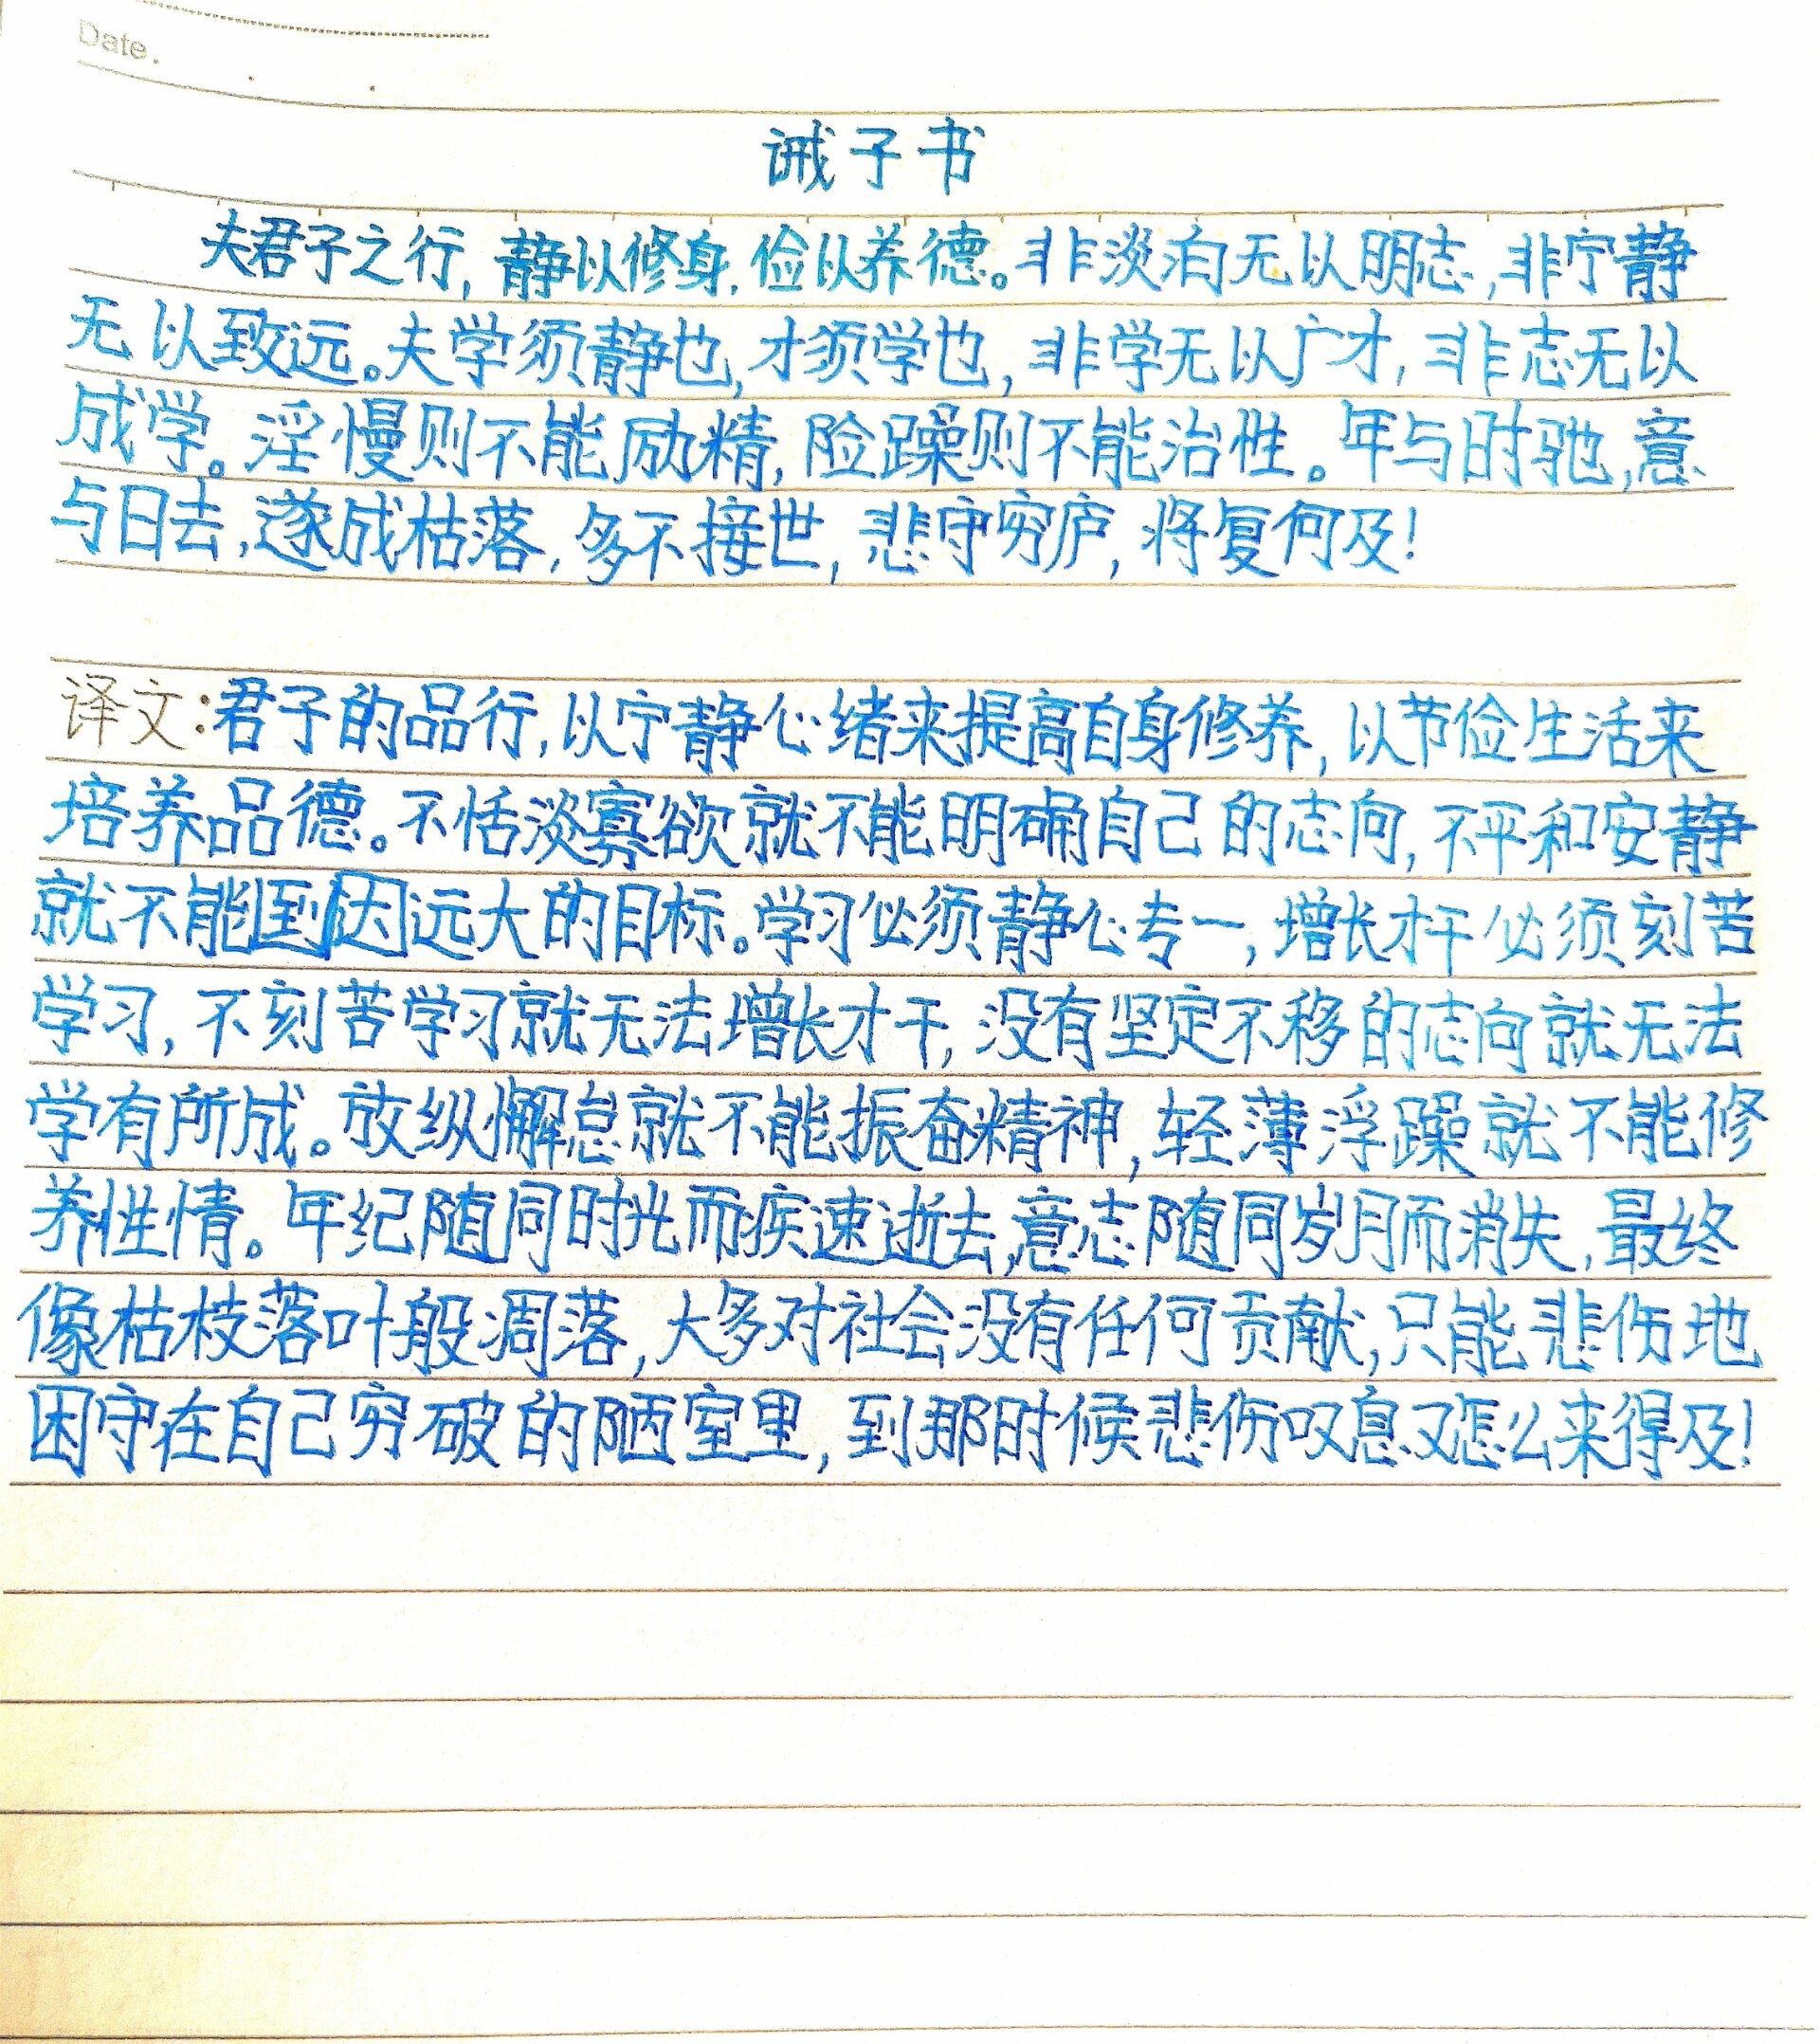 Date.
诫子书
夫君子之行,静以修身,俭以养德。非淡泊无以明志,非宁静
无以致远。夫学须静也,才须学也,非学无以广才,非志无以
成学。淫慢则不能励精,险躁则不能治性。年与时驰,意
与日去,遂成枯落,多不接世,悲守穷庐,将复何及!
译文:君子的品行,以宁静心绪来提高自身修养,以节俭生活来
培养品德。不恬淡寡欲就不能明确自己的志向,不平和安静
就不能到达远大的目标。学习必须静心专一,增长才干必须刻苦
学习,不刻苦学习就无法增长才干,没有坚定不移的志向就无法
学有所成。放纵懈怠就不能振奋精神,轻薄浮躁就不能修
养性情。年纪随同时光而疾速逝去,意志随同岁月而消失,最终
像枯枝落叶般凋落,大多对社会没有任何贡献,只能悲伤地
困守在自己穷破的陋室里,到那时候悲伤叹息又怎么来得及!